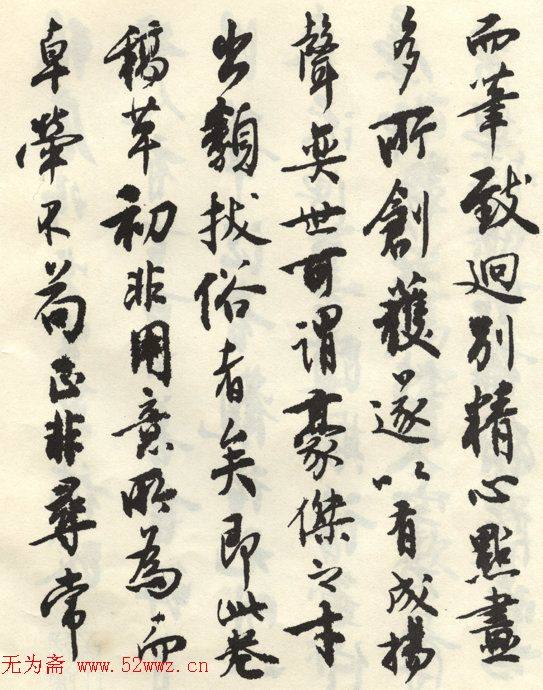 而筆致迥別精心點畫
多所創獲遂以有成揚
聲奕世可謂豪傑之才
出類拔俗者矣即此卷
稿草初非用意所為而
卓犖不苟正非尋常
无为斋 www.52wwz.cn